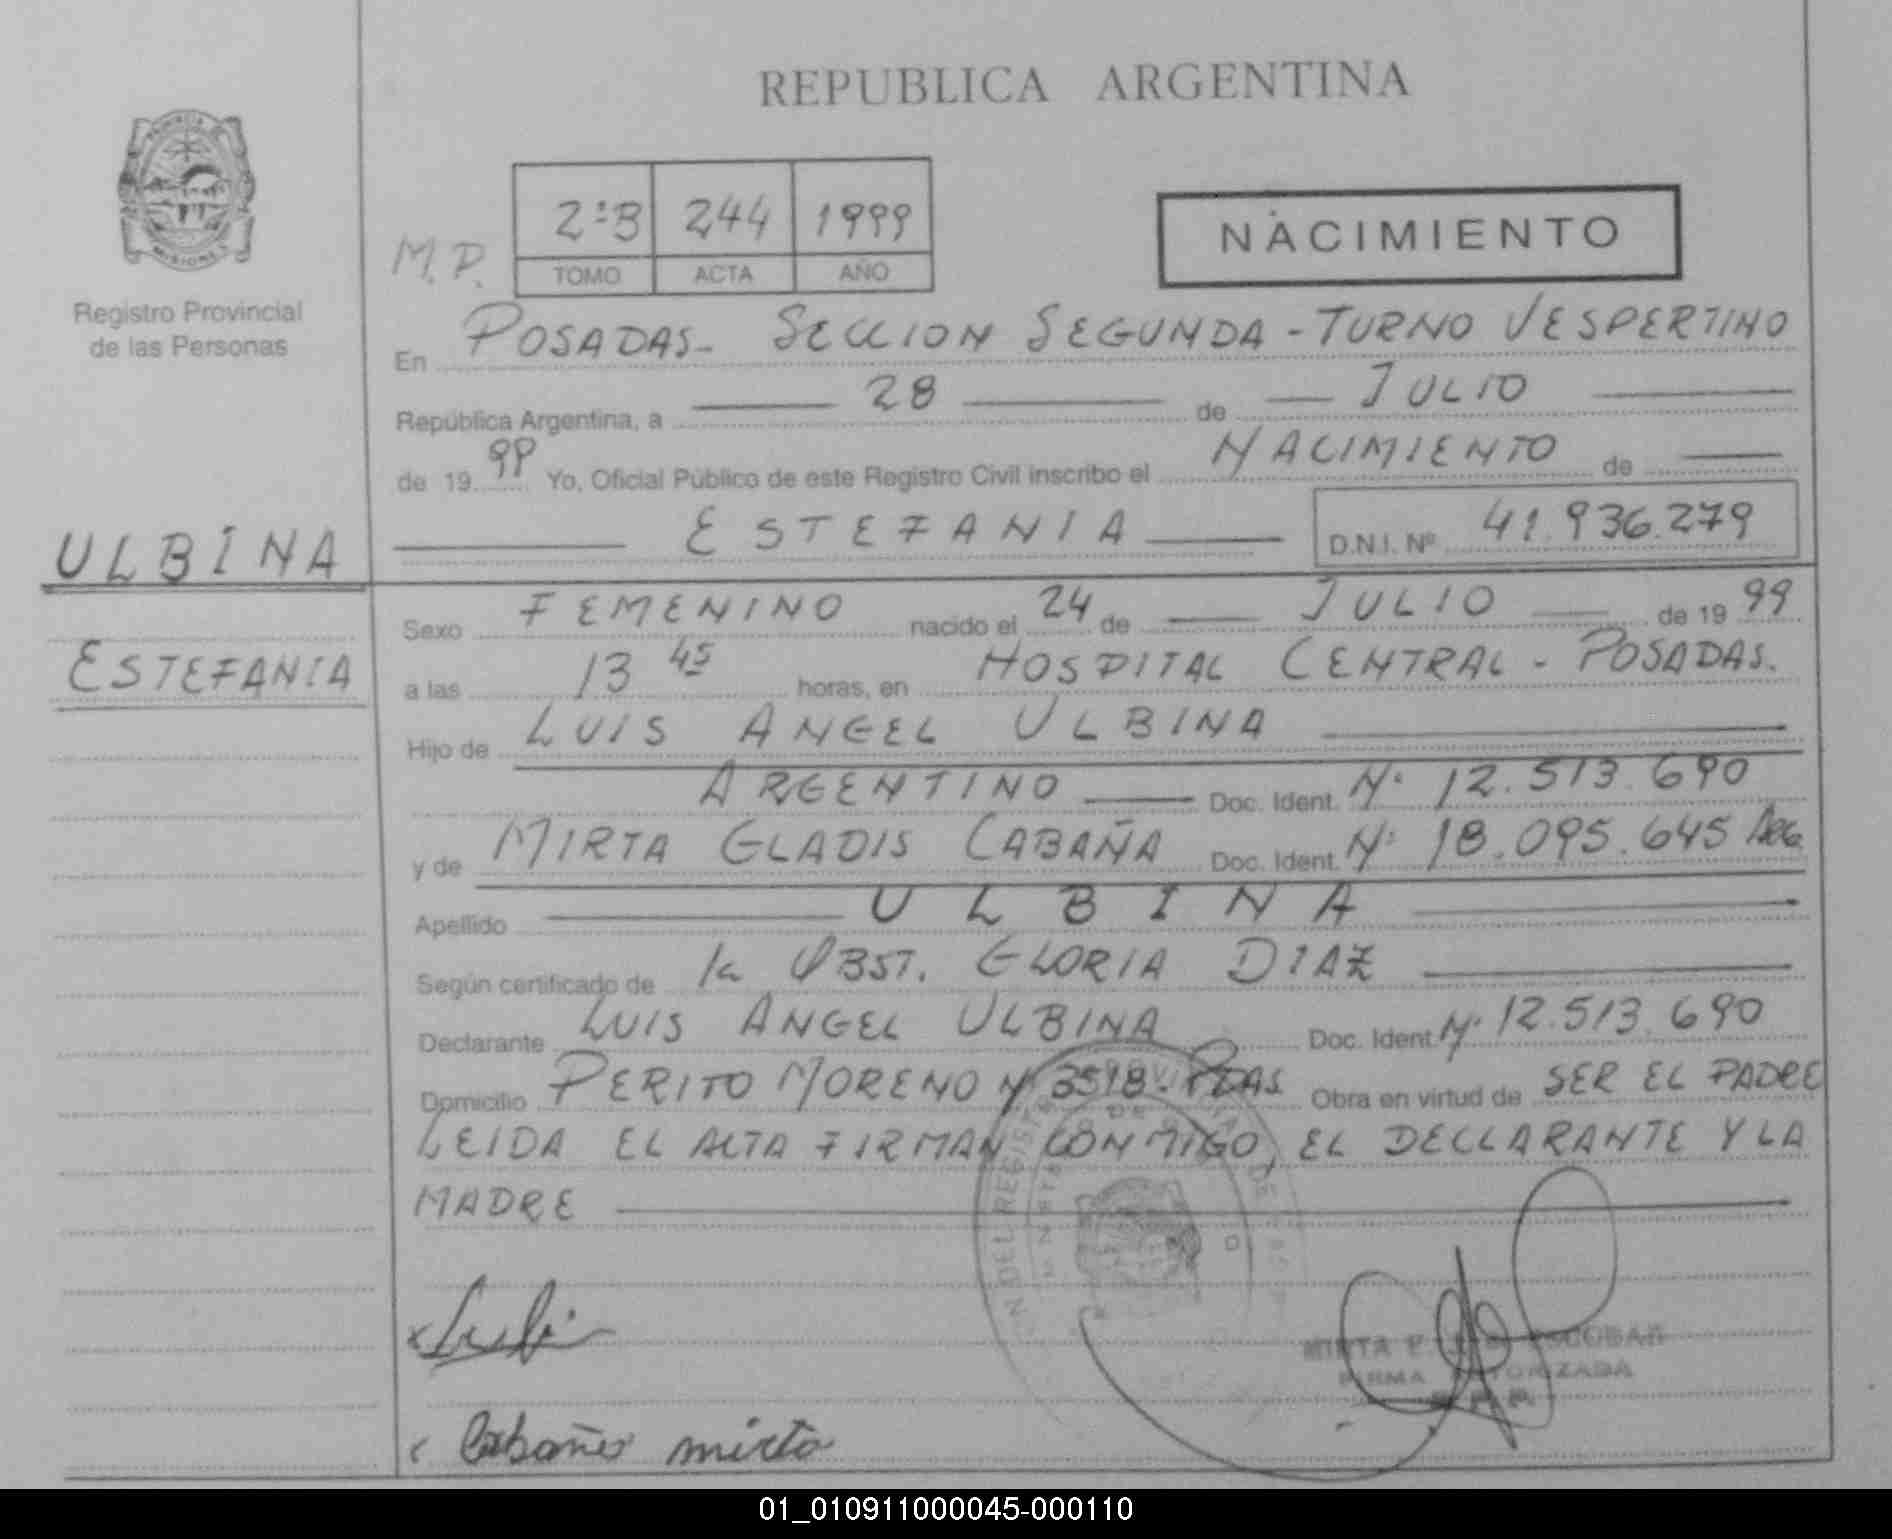 REPUBLICA ARGENTINA
PROVINCIA DE
MISIONES
Registro Provincial
de las Personas
M.P.
2ºB 244 1999
TOMO ACTA AÑO
NACIMIENTO
En POSADAS - SECCION SEGUNDA - TURNO VESPERTINO
República Argentina, a 28 de JULIO
de 19 99 Yo, Oficial Público de este Registro Civil inscribo el NACIMIENTO de
ESTEFANIA D.N.I. Nº 41.936.279
ULBINA
ESTEFANIA
Sexo FEMENINO nacido el 24 de JULIO de 19 99
a las 13 45 horas, en HOSPITAL CENTRAL - POSADAS.
Hijo de LUIS ANGEL ULBINA
ARGENTINO Doc. Ident. Nº 12.513.690
y de MIRTA GLADIS CABAÑA Doc. Ident. Nº 18.095.645 Arg.
Apellido ULBINA
Según certificado de la OBST. GLORIA DIAZ
Declarante LUIS ANGEL ULBINA Doc. Ident. Nº 12.513.690
Domicilio PERITO MORENO Nº 3598 - PDAS Obra en virtud de SER EL PADRE
LEIDA EL ACTA FIRMAN CONMIGO, EL DECLARANTE Y LA
MADRE
MIRTA E. ESCOBAR
FIRMA AUTORIZADA
Cabañas mirta
01_010911000045-000110